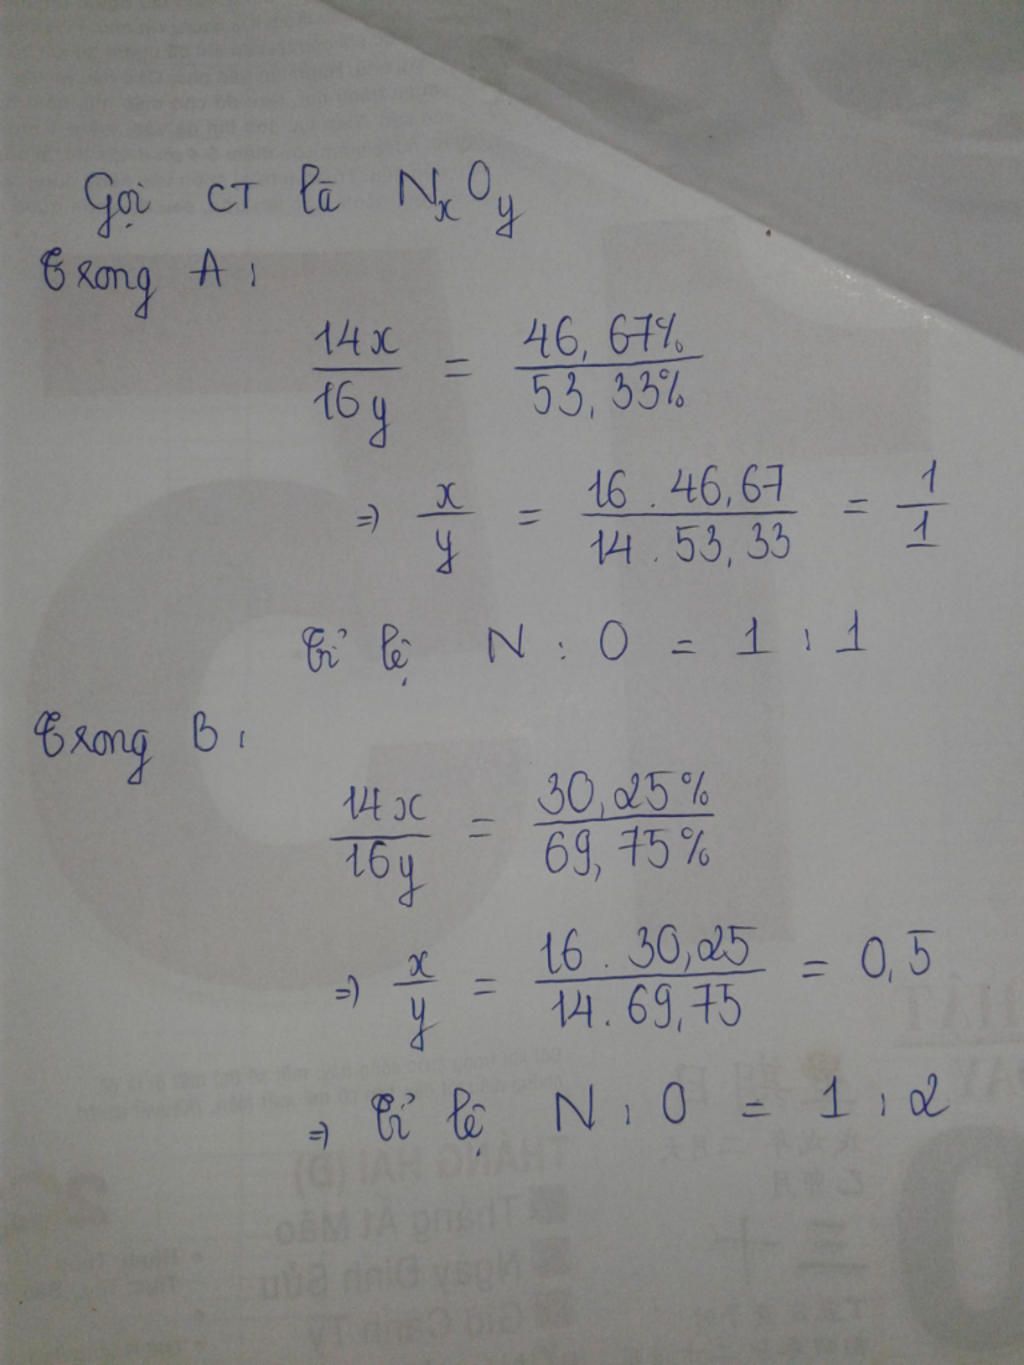 Gọi CT là NxOy
Trong A:
14x / 16y = 46,67% / 53,33%
=> x / y = 16 . 46,67 / 14 . 53,33 = 1 / 1
Tỉ lệ N : O = 1 : 1
Trong B:
14x / 16y = 30,25% / 69,75%
=> x / y = 16 . 30,25 / 14 . 69,75 = 0,5
=> Tỉ lệ N : O = 1 : 2